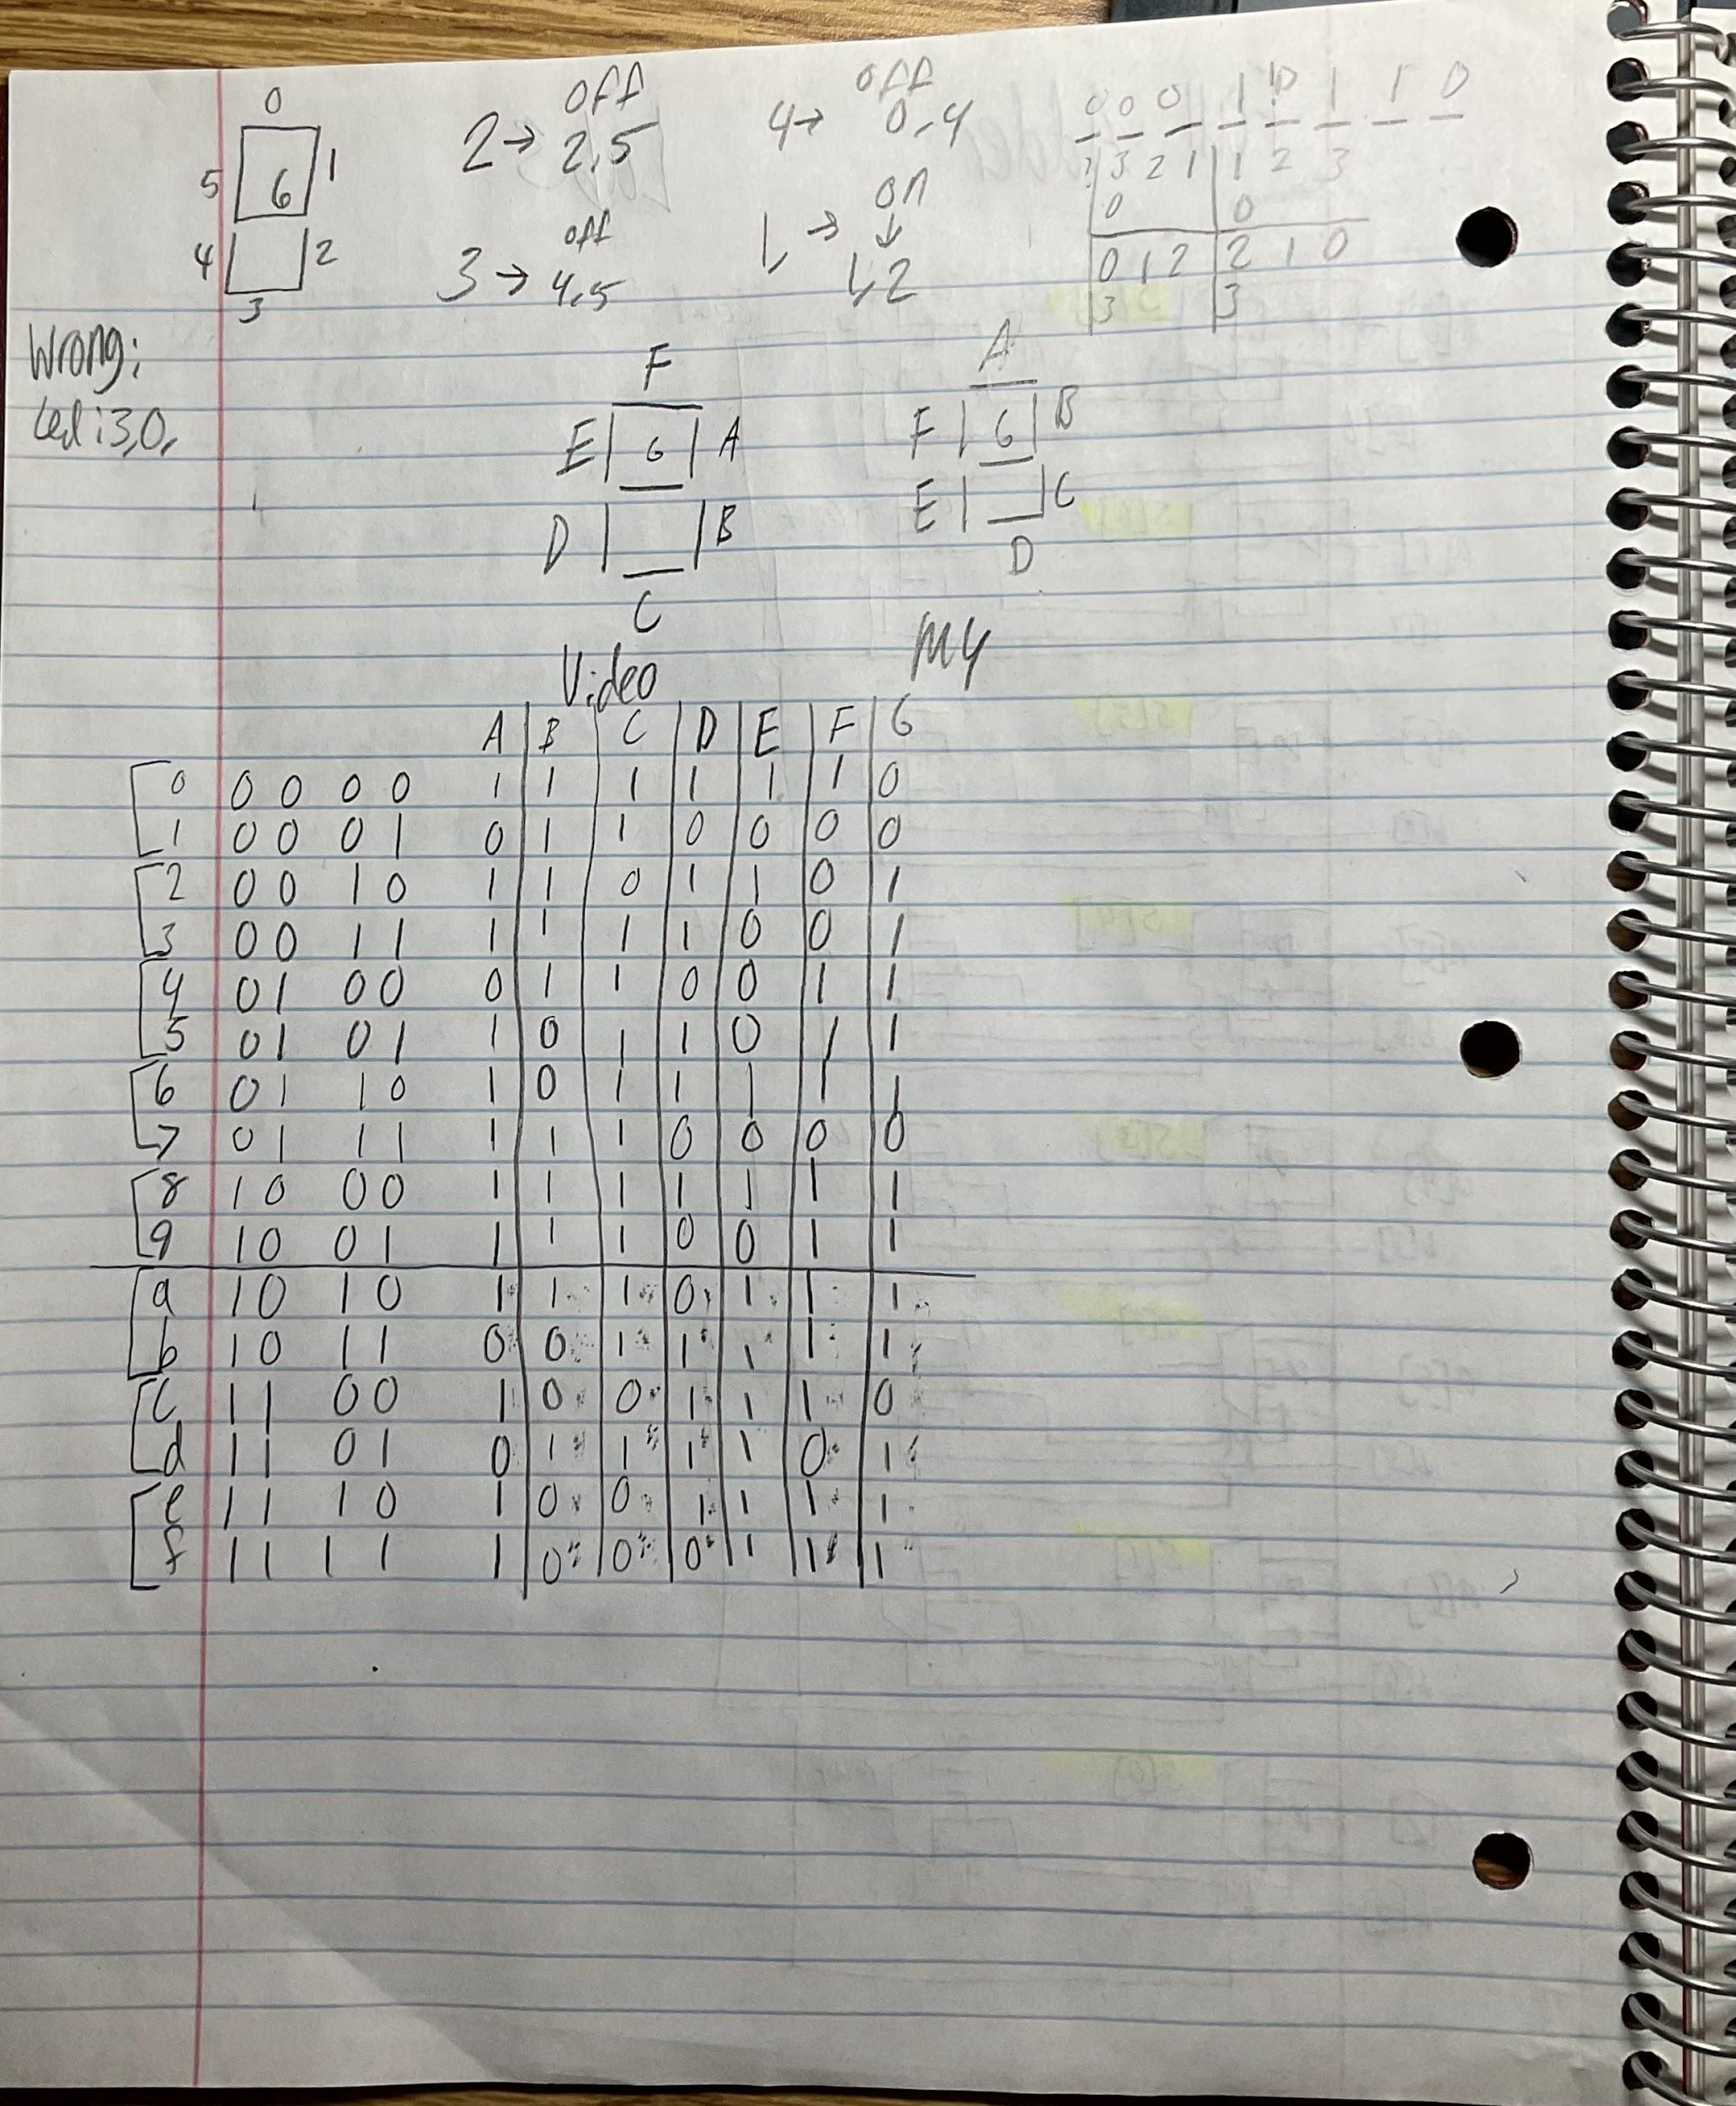 0
5 6 1
4 2
3
2 → off 2,5
3 → off 4,5
4 → off 0,4
1, → on ↓ 1,2
0 0 0 1 1 1 0
3 2 1 1 2 3
0 0
0 1 2 2 1 0
3 3
Wrong:
Led: 3,0,
F
E G A
D B
C
Video
A
F G B
E C
D
MY
A B C D E F G
0 0 0 0 0 1 1 1 1 1 1 0
1 0 0 0 1 0 1 1 0 0 0 0
2 0 0 1 0 1 1 0 1 1 0 1
3 0 0 1 1 1 1 1 1 0 0 1
4 0 1 0 0 0 1 1 0 0 1 1
5 0 1 0 1 1 0 1 1 0 1 1
6 0 1 1 0 1 0 1 1 1 1 1
7 0 1 1 1 1 1 1 0 0 0 0
8 1 0 0 0 1 1 1 1 1 1 1
9 1 0 0 1 1 1 1 0 0 1 1
a 1 0 1 0 1 1 1 0 1 1 1
b 1 0 1 1 0 0 1 1 1 1 1
c 1 1 0 0 1 0 0 1 1 1 0
d 1 1 0 1 0 1 1 1 1 0 1
e 1 1 1 0 1 0 0 1 1 1 1
f 1 1 1 1 1 0 0 0 1 1 1